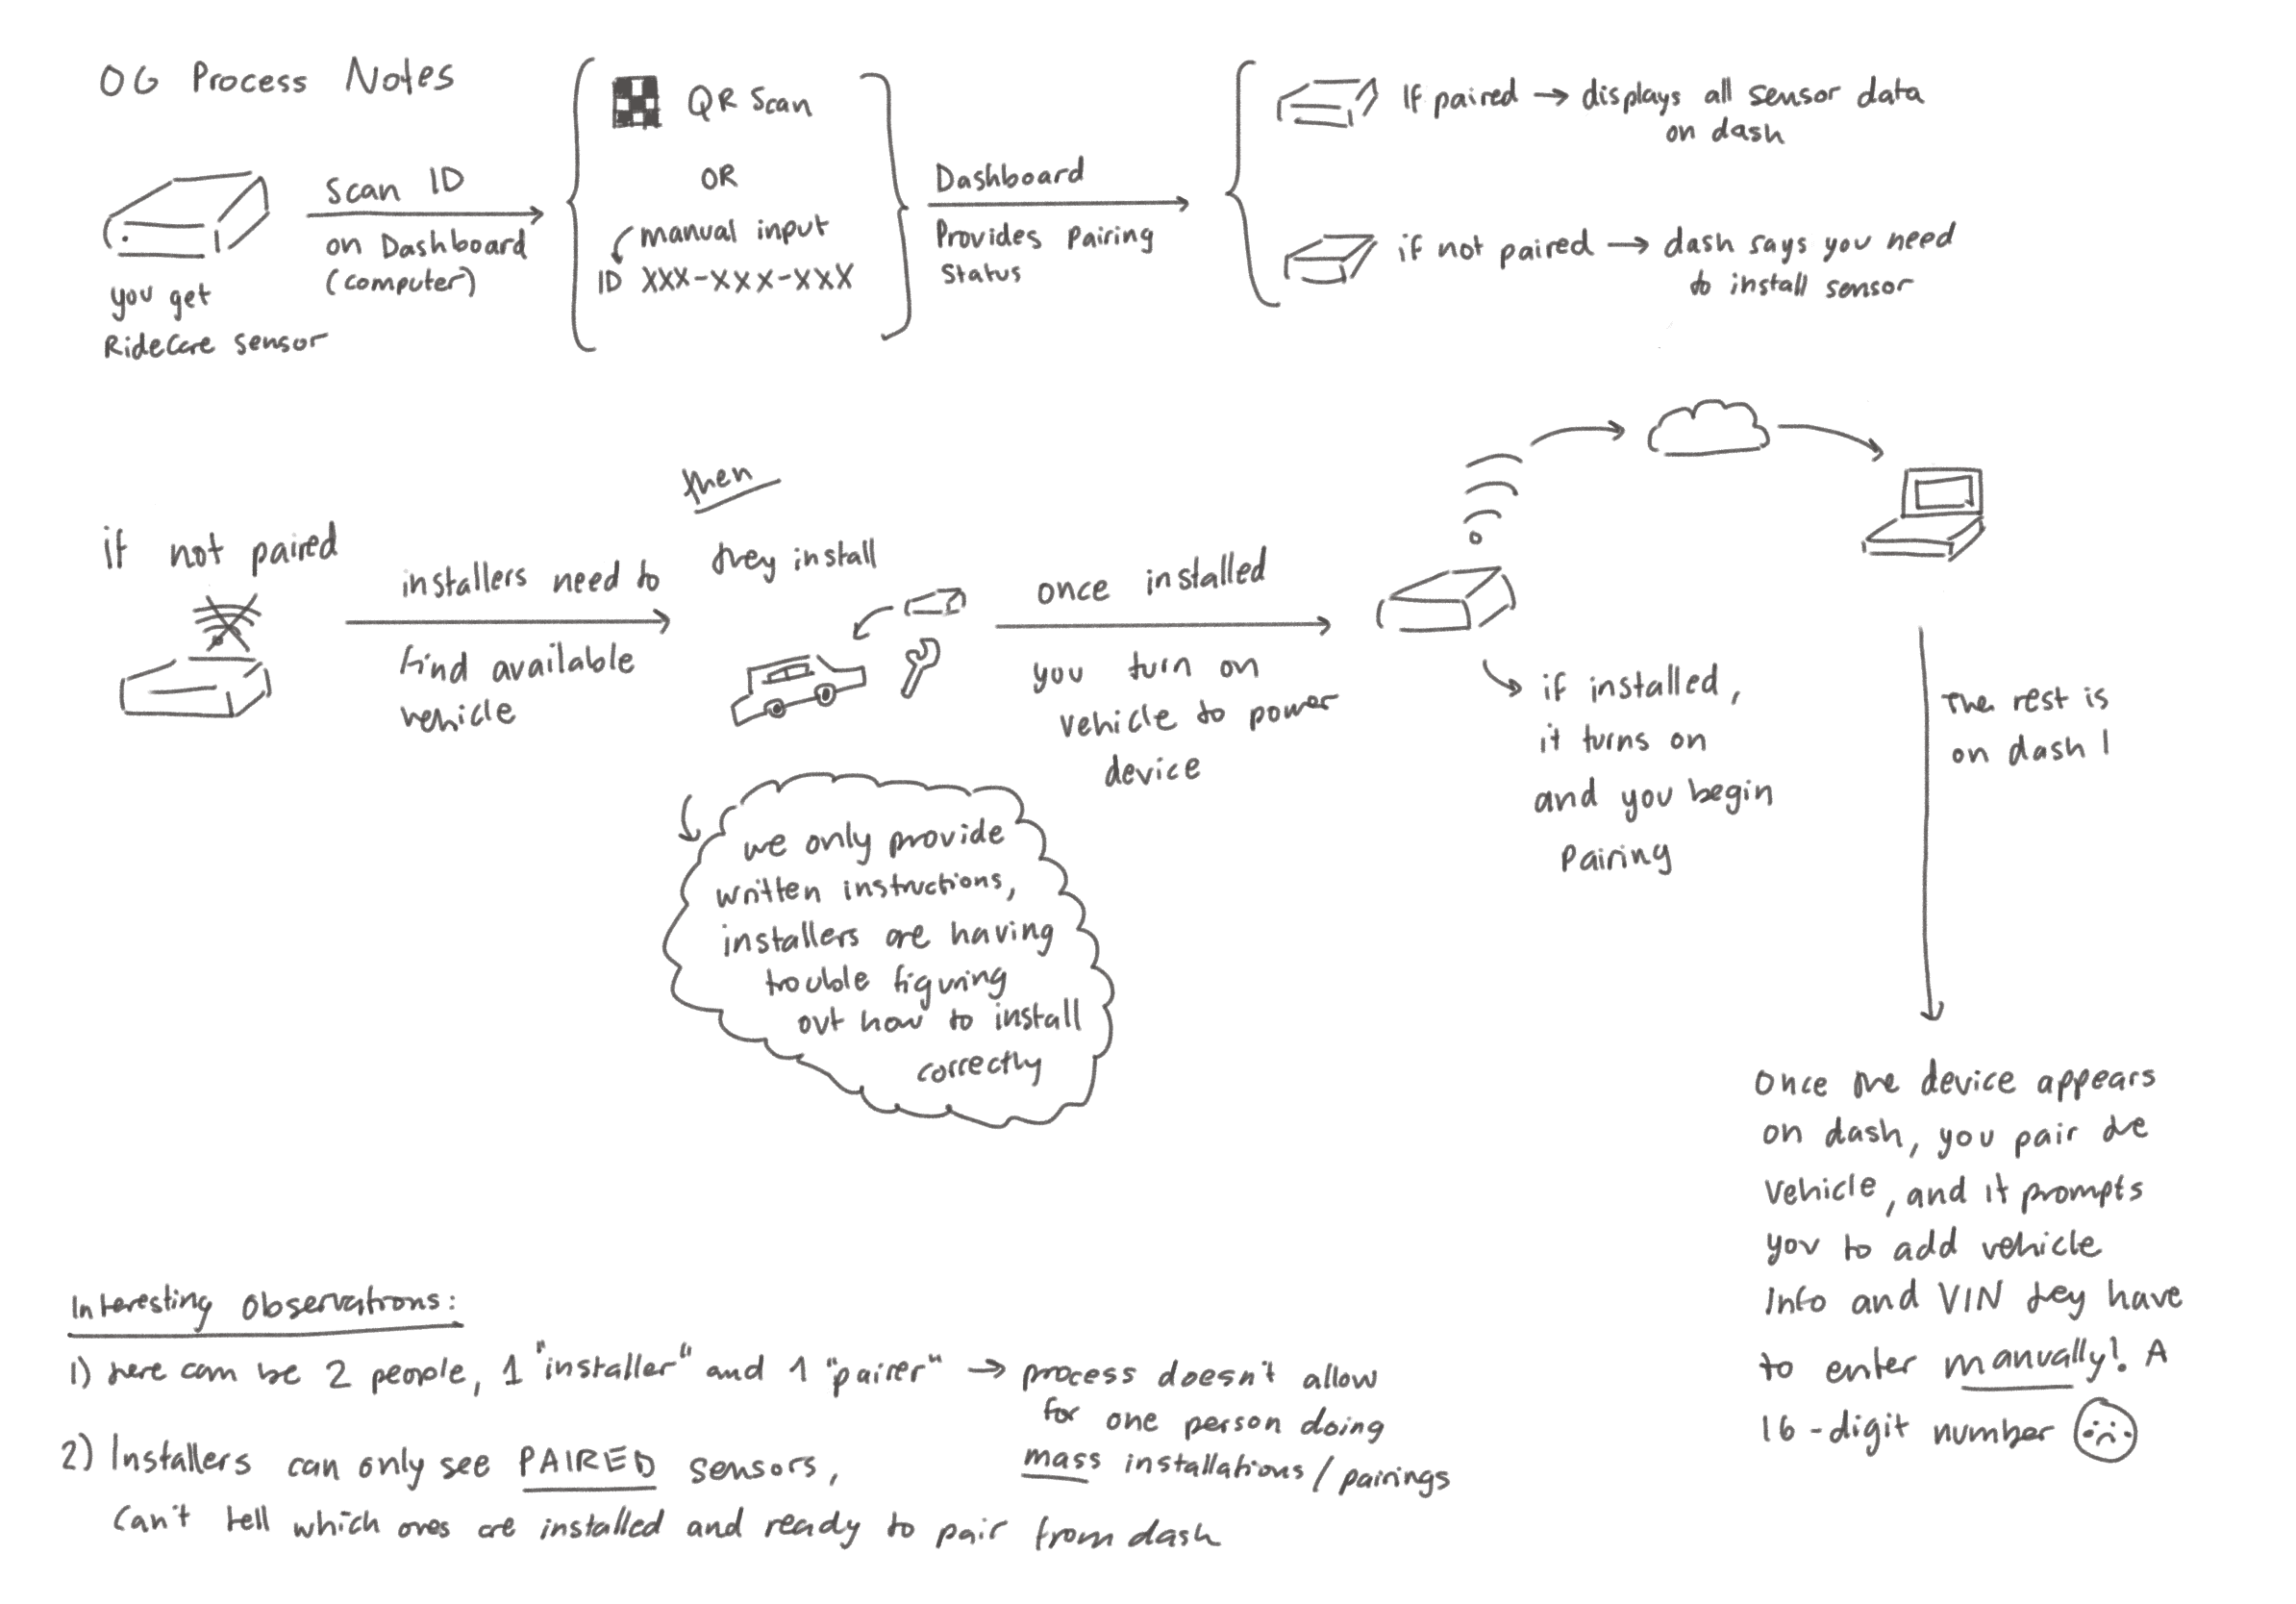 OG Process Notes
you get
RideCare sensor
Scan ID
on Dashboard
(computer)
QR Scan
OR
manual input
ID XXX-XXX-XXX
Dashboard
Provides Pairing
Status
If paired → displays all sensor data
on dash
if not paired → dash says you need
to install sensor
if not paired
installers need to
find available
vehicle
then
they install
we only provide
written instructions,
installers are having
trouble figuring
out how to install
correctly
once installed
you turn on
vehicle to power
device
if installed,
it turns on
and you begin
pairing
The rest is
on dash!
Once the device appears
on dash, you pair the
vehicle, and it prompts
you to add vehicle
info and VIN they have
to enter manually! A
16-digit number
Interesting Observations:
1) there can be 2 people, 1 "installer" and 1 "pairer" → process doesn't allow
for one person doing
mass installations/pairings
2) Installers can only see PAIRED sensors,
Can't tell which ones are installed and ready to pair from dash